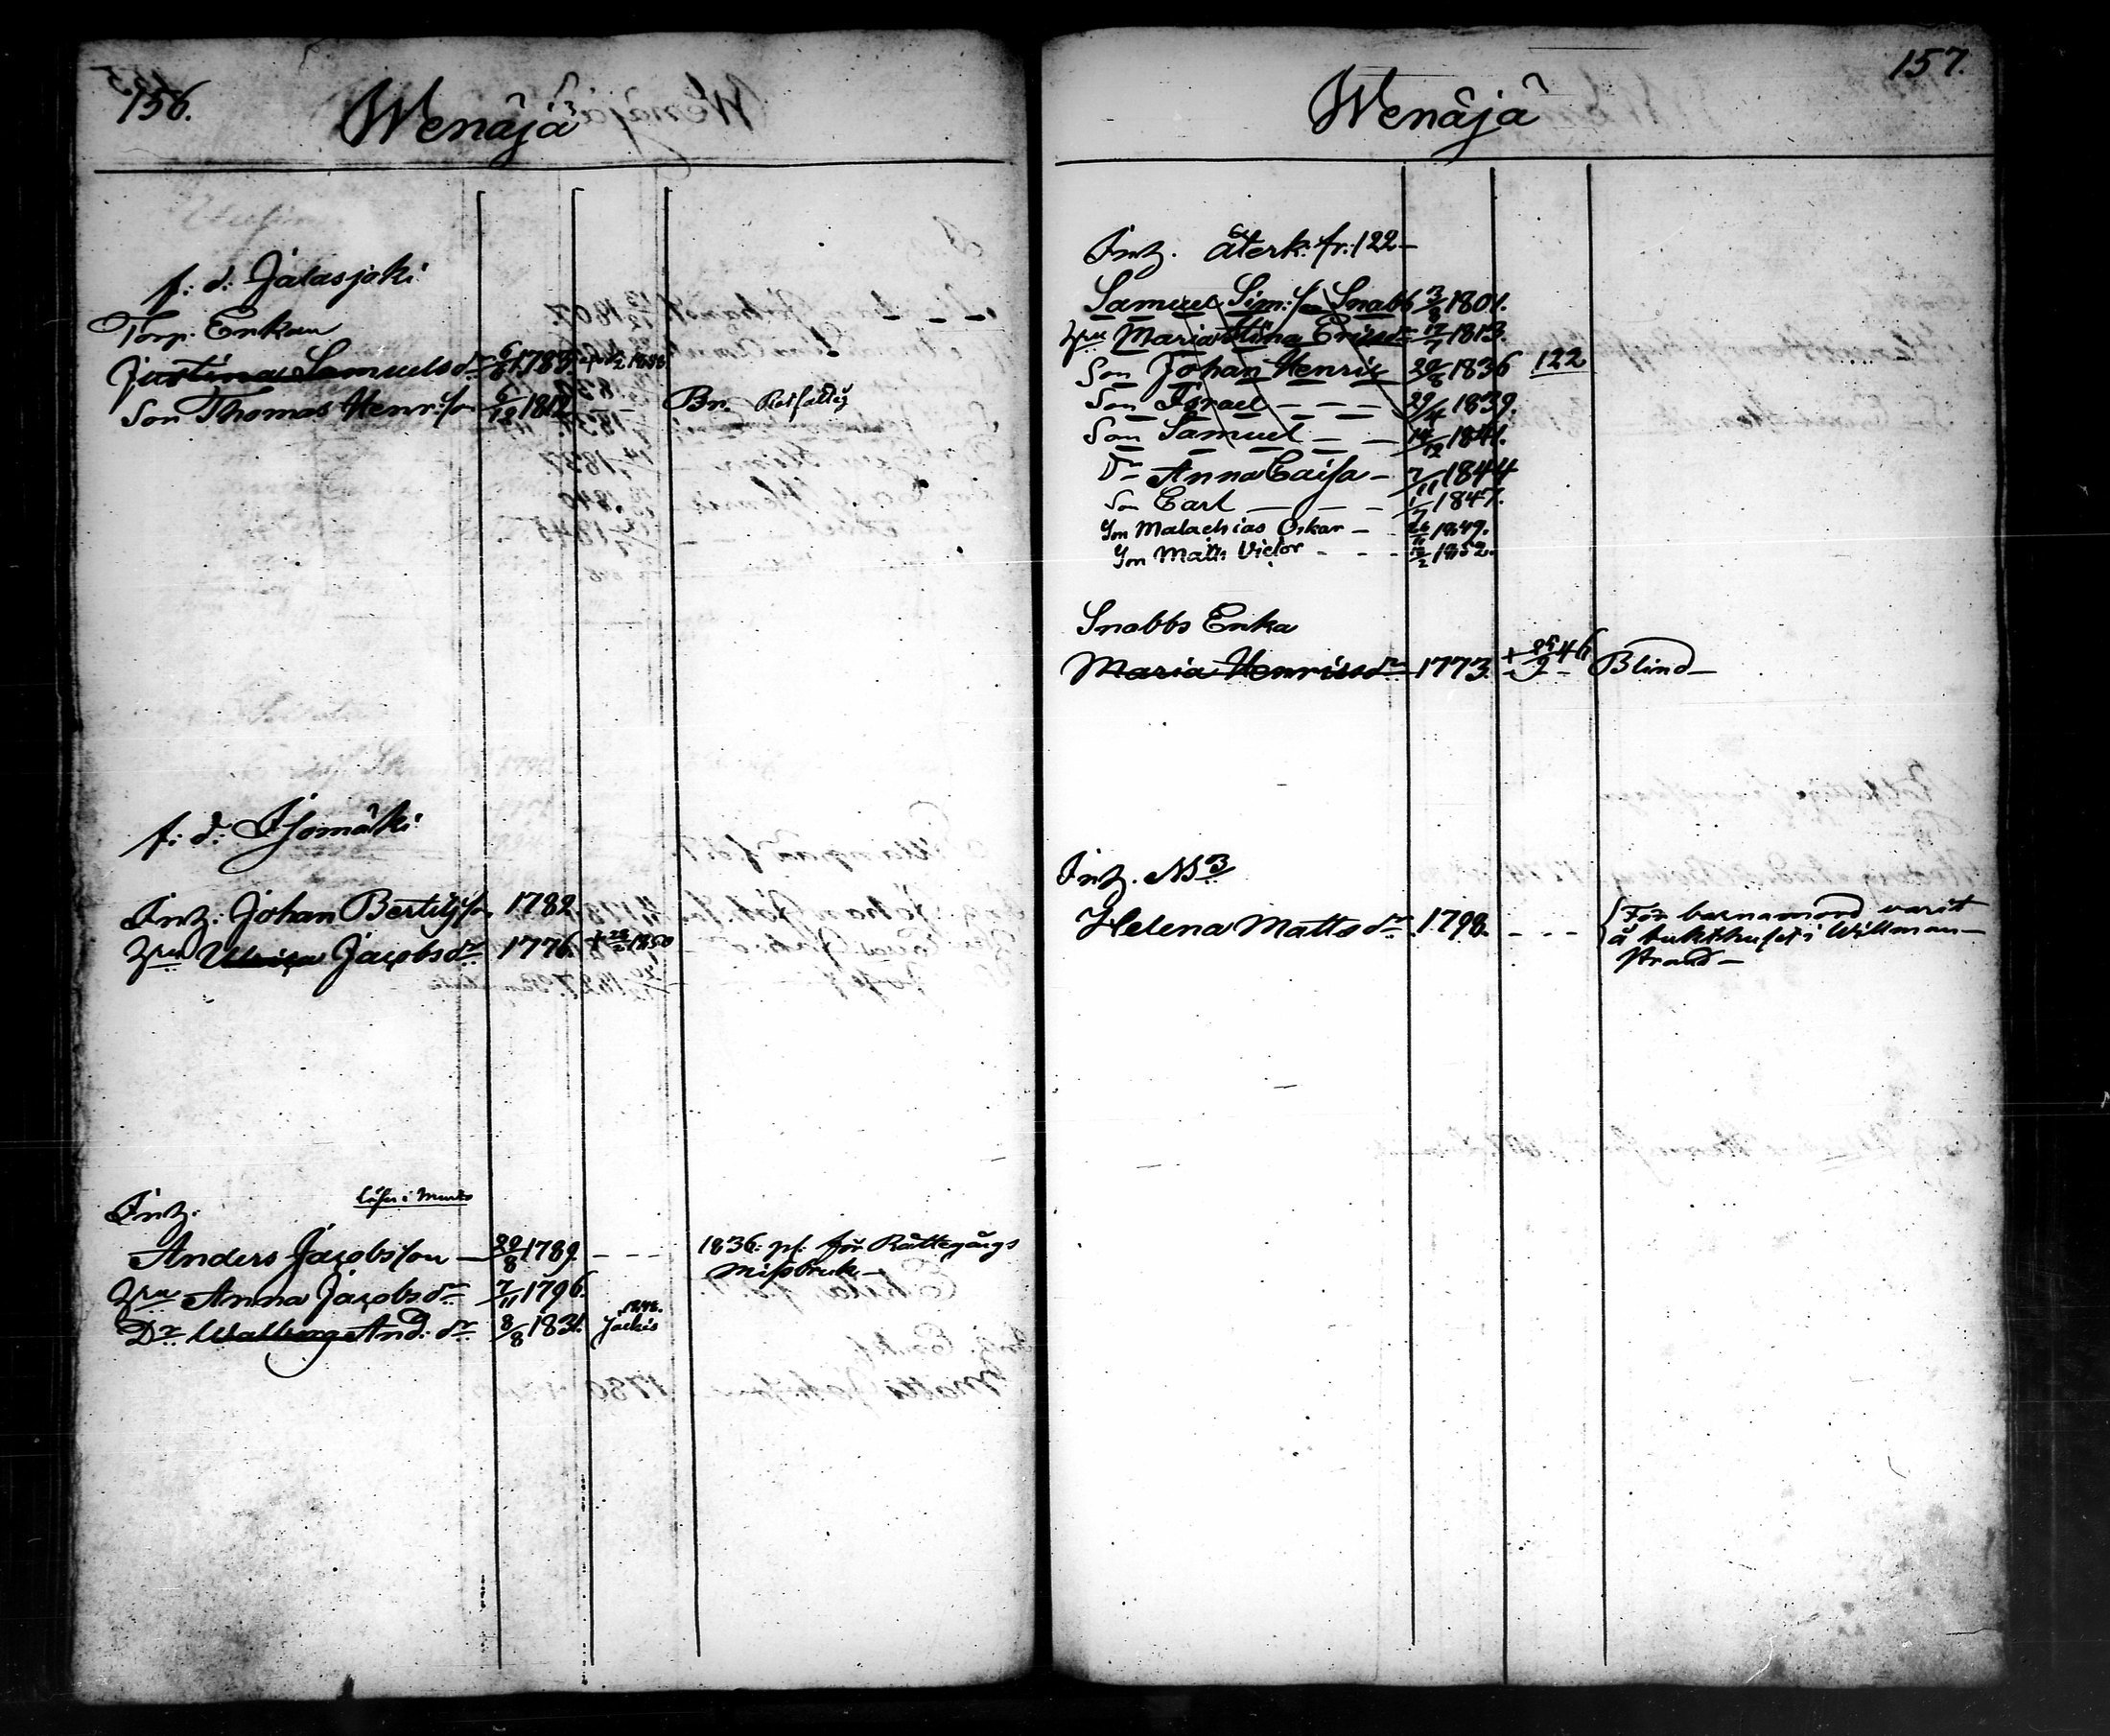 156.
Wenäjä
f: d: Jalasjoki
Torp. Enkan
Justina Samuelsdr 6/8 1783.
Son Thomas Henr:son 6/12 1812 Br. Rotfattig
f: d: Isomäki
Inh: Johan Bertilsson 1782
Hru Ulrica Jacobsdr 1776. + 23/2 1850
Inh. läser i
Anders Jacobsson 20/8 1789 - - - 1836: pl. för Rättegångs
missbruk
Hru Anna Jacobsdr 7/11 1796.
Dr Walborg And:dr 8/8 1831. 1848. Jackis
157.
Wenäjä
Inh. återk. fr. 122
Samuel Sim:son Snabb 3/8 1801.
Hru Maria Stina Ericsdr 12/7 1813.
Son Johan Henric 20/8 1836 122
Son Israel - - - 29/4 1839.
Son Samuel - - 14/12 1841.
Dr Anna Caisa - 7/11 1844
Son Carl - - - 1/7 1847.
Son Malachias Oskar - 1849.
Son Matts Victor - - - 12/2 1852.
Snabbs Enka
Maria Henricsdr 1773. + 25/9 46 Blind
Inh. No 3
Helena Mattsdr 1798. - - - För barnamord varit
å tukthuset i Willman-
strand